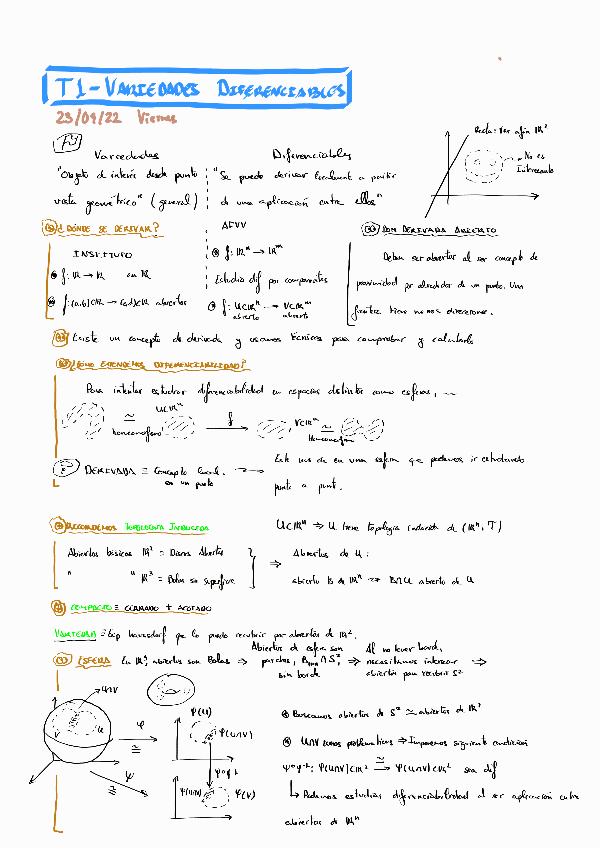 T1-VARIEDADES DIFERENCIABLES
23/09/22 Viernes
Variedades Diferenciables
"Objeto de interés desde punto
vista geométrico" (general)
"Se puede derivar localmente a partir
de una aplicación entre ellos"
Recta: Var afín ℝ²
No es
Interesante
¿DÓNDE SE DERIVAR?
INSTITUTO
f: ℝ → ℝ en ℝ
f: (a,b)⊂ℝ → (c,d)⊂ℝ abiertos
AFVV
f: ℝⁿ → ℝᵐ
Estudia dif por componentes
f: U⊂ℝⁿ → V⊂ℝᵐ
abierto abierto
CON DERIVADA ABIERTO
Deben ser abiertos al ser concepto de
proximidad por alrededor de un punto. Una
frontera tiene menos direcciones.
Existe un concepto de derivada y usamos técnicas para comprobar y calcularla
¿CÓMO EXTENDEMOS DIFERENCIABILIDAD?
Para intentar estudiar diferenciabilidad en espacios distintos como esferas,
≃ U⊂ℝⁿ f V⊂ℝᵐ ≃
homeomorfo homeomorfo
DERIVADA ≡ Concepto local.
en un punto
Este nos da en una esfera que podamos ir estudiando
punto a punto.
RECORDEMOS TOPOLOGÍA INDUCIDA
U⊂ℝⁿ ⇒ U tiene topología inducida de (ℝⁿ, T)
Abiertos básicos ℝ² = Discos Abiertos
" " ℝ³ = Bolas sin superficie
⇒ Abiertos de U:
abierto B de ℝⁿ ⇒ B∩U abierto de U
COMPACTO ≡ CERRADO + ACOTADO
VARIEDAD ≡ Esp hausdorff que lo puedo recubrir por abiertos de ℝ².
ESFERA En ℝ³, abiertos son Bolas ⇒
Abiertos de esfera son
parches, ∩ S²,
sin borde
⇒ Al no tener borde,
necesitamos intersecar
abiertos para recubrir S²
⇒
U∩V
U
φ
≅
ψ
≅
φ(U)
φ(U∩V)
ψ∘φ⁻¹
ψ(U∩V)
ψ(V)
Buscamos abiertos de S² ≃ abiertos de ℝ²
U∩V zonas problemáticas ⇒ Imponemos siguiente condición
ψ∘φ⁻¹: φ(U∩V)⊂ℝ² → ψ(U∩V)⊂ℝ² sea dif
Podemos estudiar diferenciabilidad al ser aplicación entre
abiertos de ℝⁿ